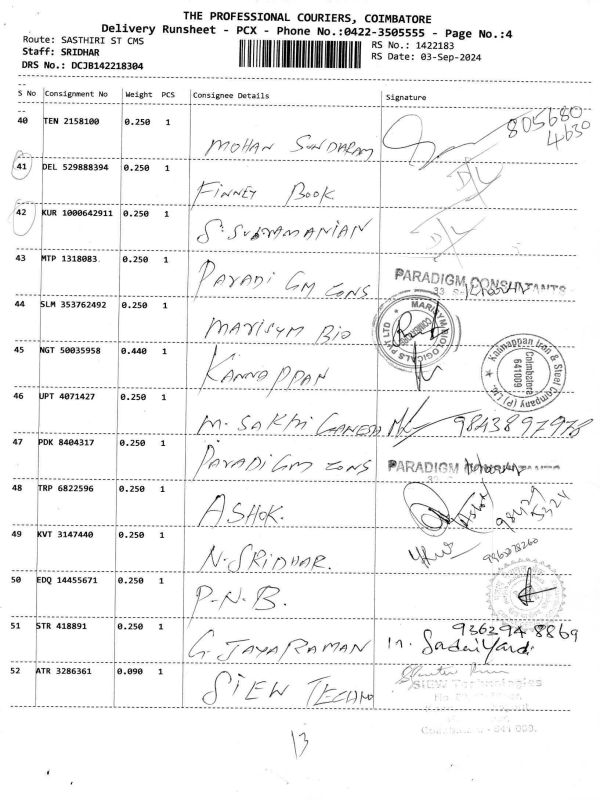 THE PROFESSIONAL COURIERS, COIMBATORE
Delivery Runsheet - PCX - Phone No.:0422-3505555 - Page No.:4
Route: SASTHIRI ST CMS
RS No.: 1422183
Staff: SRIDHAR
RS Date: 03-Sep-2024
DRS No.: DCJB142218304
S No Consignment No Weight PCS Consignee Details Signature
40 TEN 2158100 0.250 1
MOHAN SUNDARAM
805680
4630
41 DEL 529888394 0.250 1
FINNEY BOOK
D/L
42 KUR 1000642911 0.250 1
S. SUBRAMANIAN
D/L
43 MTP 1318083 0.250 1
PARADIGM CONS
PARADIGM CONSULTANTS
44 SLM 353762492 0.250 1
MARISYM BIO
45 NGT 50035958 0.440 1
KANNAPPAN
Kannappan Iron & Steel Company (P) Ltd.
Coimbatore
641009
46 UPT 4071427 0.250 1
M. SAKHI GANESH
9843897978
47 PDK 8404317 0.250 1
PARADIGM CONS
PARADIGM
48 TRP 6822596 0.250 1
ASHOK.
Ashok
98429
5324
49 KVT 3147440 0.250 1
N. SRIDHAR.
50 EDQ 14455671 0.250 1
P.N.B.
51 STR 418891 0.250 1
G JAYARAMAN
936294 8869
52 ATR 3286361 0.090 1
SIEW TECHNO
SIEW Technologies
13